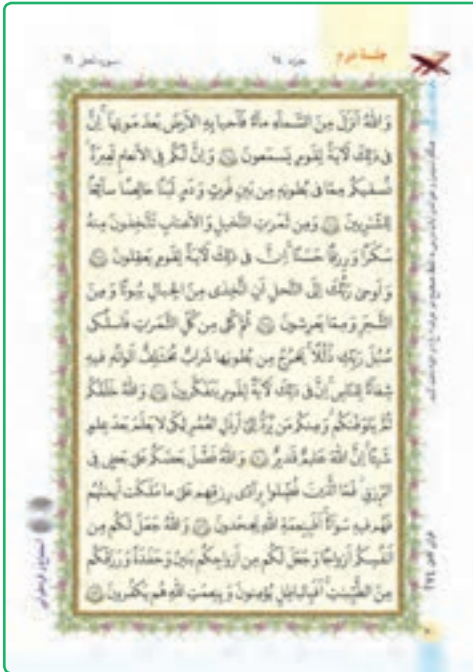 جلسهٔ دوم
جزء ١٤
سورهٔ نحل ١٦
وَاللّٰهُ أَنْزَلَ مِنَ السَّمَاءِ مَاءً فَأَحْيَا بِهِ الْأَرْضَ بَعْدَ مَوْتِهَا إِنَّ
فِي ذٰلِكَ لَآيَةً لِقَوْمٍ يَسْمَعُونَ ٦٥ وَإِنَّ لَكُمْ فِي الْأَنْعَامِ لَعِبْرَةً
نُسْقِيكُمْ مِمَّا فِي بُطُونِهِ مِنْ بَيْنِ فَرْثٍ وَدَمٍ لَبَنًا خَالِصًا سَائِغًا
لِلشَّارِبِينَ ٦٦ وَمِنْ ثَمَرَاتِ النَّخِيلِ وَالْأَعْنَابِ تَتَّخِذُونَ مِنْهُ
سَكَرًا وَرِزْقًا حَسَنًا إِنَّ فِي ذٰلِكَ لَآيَةً لِقَوْمٍ يَعْقِلُونَ ٦٧
وَأَوْحَىٰ رَبُّكَ إِلَى النَّحْلِ أَنِ اتَّخِذِي مِنَ الْجِبَالِ بُيُوتًا وَمِنَ
الشَّجَرِ وَمِمَّا يَعْرِشُونَ ٦٨ ثُمَّ كُلِي مِنْ كُلِّ الثَّمَرَاتِ فَاسْلُكِي
سُبُلَ رَبِّكِ ذُلُلًا يَخْرُجُ مِنْ بُطُونِهَا شَرَابٌ مُخْتَلِفٌ أَلْوَانُهُ فِيهِ
شِفَاءٌ لِلنَّاسِ إِنَّ فِي ذٰلِكَ لَآيَةً لِقَوْمٍ يَتَفَكَّرُونَ ٦٩ وَاللّٰهُ خَلَقَكُمْ
ثُمَّ يَتَوَفَّاكُمْ وَمِنْكُمْ مَنْ يُرَدُّ إِلَىٰ أَرْذَلِ الْعُمُرِ لِكَيْ لَا يَعْلَمَ بَعْدَ عِلْمٍ
شَيْئًا إِنَّ اللّٰهَ عَلِيمٌ قَدِيرٌ ٧٠ وَاللّٰهُ فَضَّلَ بَعْضَكُمْ عَلَىٰ بَعْضٍ فِي
الرِّزْقِ فَمَا الَّذِينَ فُضِّلُوا بِرَادِّي رِزْقِهِمْ عَلَىٰ مَا مَلَكَتْ أَيْمَانُهُمْ
فَهُمْ فِيهِ سَوَاءٌ أَفَبِنِعْمَةِ اللّٰهِ يَجْحَدُونَ ٧١ وَاللّٰهُ جَعَلَ لَكُمْ مِنْ
أَنْفُسِكُمْ أَزْوَاجًا وَجَعَلَ لَكُمْ مِنْ أَزْوَاجِكُمْ بَنِينَ وَحَفَدَةً وَرَزَقَكُمْ
مِنَ الطَّيِّبَاتِ أَفَبِالْبَاطِلِ يُؤْمِنُونَ وَبِنِعْمَتِ اللّٰهِ هُمْ يَكْفُرُونَ ٧٢